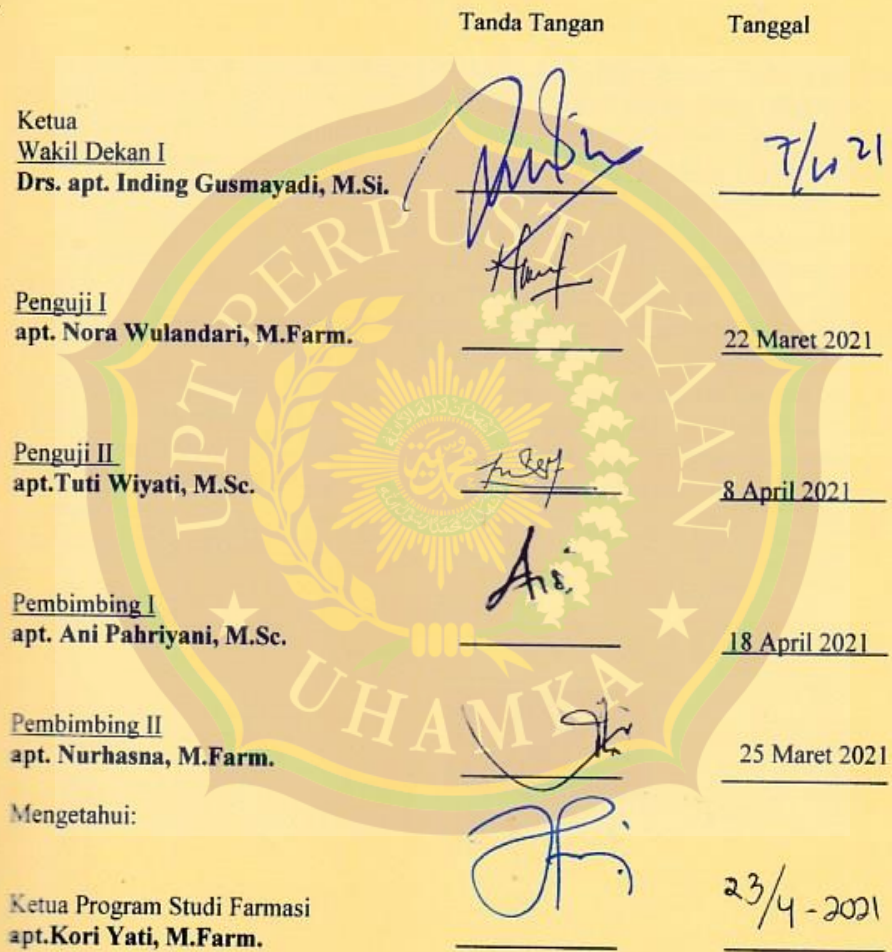 Tanda Tangan Tanggal
Ketua
Wakil Dekan I
Drs. apt. Inding Gusmayadi, M.Si.
Penguji I
apt. Nora Wulandari, M.Farm.
22 Maret 2021
Penguji II
apt.Tuti Wiyati, M.Sc.
8 April 2021
Pembimbing I
apt. Ani Pahriyani, M.Sc.
18 April 2021
Pembimbing II
apt. Nurhasna, M.Farm.
25 Maret 2021
Mengetahui:
Ketua Program Studi Farmasi
apt.Kori Yati, M.Farm.
23/4-2021
UPT PERPUSTAKAAN
UHAMKA